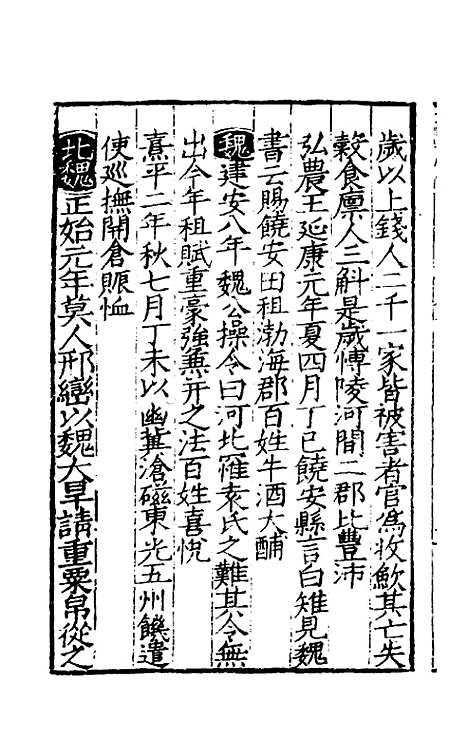 歲以上錢人二千一家皆被害者官爲收斂其亡失
穀食廪人三斛是歲愽陵河間二郡比豐沛
弘農王延康元年夏四月丁巳饒安縣言白雉見魏
書云賜饒安田租渤海郡百姓牛酒大酺
魏建安八年魏公操令曰河北罹袁氏之難其令無
出今年租賦重豪強兼并之法百姓喜悅
熹平二年秋七月丁未以幽冀滄磁東光五州饑遣
使廵撫開倉賑恤
北魏正始元年莫人邢巒以魏大旱請重粟帛從之